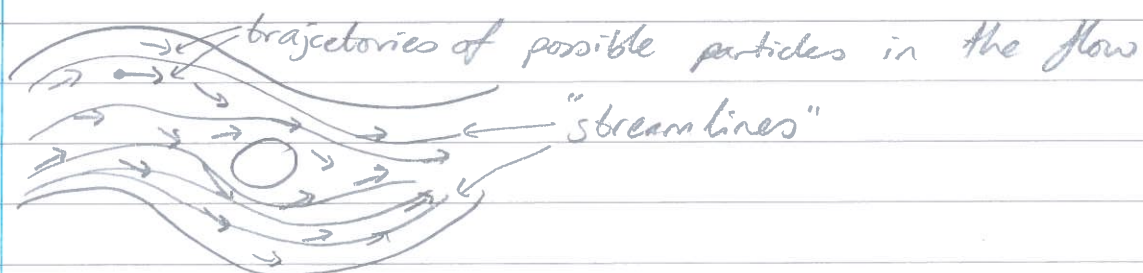 trajcetories of possible particles in the flow
"streamlines"